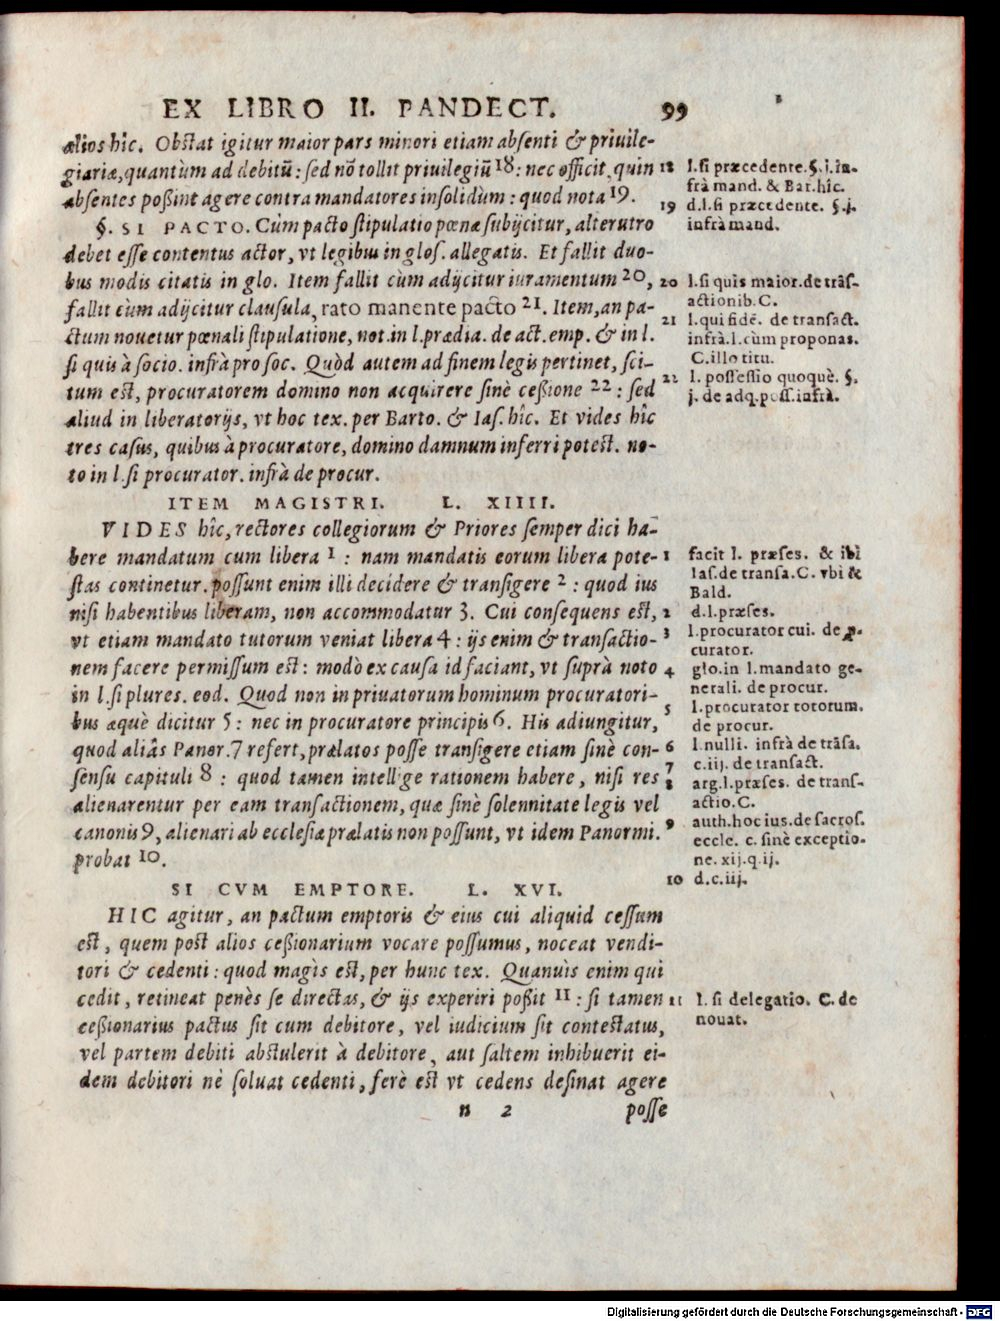 EX LIBRO II. PANDECT. 99
alios hîc. Obstat igitur maior pars minori etiam absenti & priuile-
giariæ, quantùm ad debitũ: sed nõ tollit priuilegiũ 18: nec officit, quin
absentes poßint agere contra mandatores insolidùm: quod nota 19.
§. SI PACTO. Cùm pacto stipulatio pœnæ subijcitur, alterutro
debet esse contentus actor, vt legibus in glos. allegatis. Et fallit duo-
bus modis citatis in glo. Item fallit cùm adijcitur iuramentum 20,
fallit cùm adijcitur clausula, rato manente pacto 21. Item, an pa-
ctum nouetur pœnali stipulatione, not. in l. prædia. de act. emp. & in l.
si quis à socio. infrà pro soc. Quòd autem ad finem legis pertinet, sci-
tum est, procuratorem domino non acquirere sinè ceßione 22: sed
aliud in liberatorijs, vt hoc tex. per Barto. & Ias. hîc. Et vides hîc
tres casus, quibus à procuratore, domino damnum inferri potest. no-
to in l. si procurator. infrà de procur.
ITEM MAGISTRI. L. XIIII.
VIDES hîc, rectores collegiorum & Priores semper dici ha-
bere mandatum cum libera 1: nam mandatis eorum libera pote-
stas continetur. possunt enim illi decidere & transigere 2: quod ius
nisi habentibus liberam, non accommodatur 3. Cui consequens est,
vt etiam mandato tutorum veniat libera 4: ijs enim & transactio-
nem facere permissum est: modò ex causa id faciant, vt suprà noto
in l. si plures. eod. Quod non in priuatorum hominum procuratori-
bus æquè dicitur 5: nec in procuratore principis 6. His adiungitur,
quod aliâs Panor. 7 refert, prælatos posse transigere etiam sinè con-
sensu capituli 8: quod tamen intellige rationem habere, nisi res
alienarentur per eam transactionem, quæ sinè solennitate legis vel
canonis 9, alienari ab ecclesiæ prælatis non possunt, vt idem Panormi.
probat 10.
SI CVM EMPTORE. L. XVI.
HIC agitur, an pactum emptoris & eius cui aliquid cessum
est, quem post alios ceßionarium vocare possumus, noceat vendi-
tori & cedenti: quod magìs est, per hunc tex. Quanuìs enim qui
cedit, retineat penès se directas, & ijs experiri poßit 11: si tamen
ceßionarius pactus sit cum debitore, vel iudicium sit contestatus,
vel partem debiti abstulerit à debitore, aut saltem inhibuerit ei-
dem debitori nè soluat cedenti, ferè est vt cedens desinat agere
n 2 posse
18 l. si præcedente. §. j. in-
frà mand. & Bar. hîc.
19 d. l. si præcedente. §. j.
infrà mand.
20 l. si quis maior. de trãs-
actionib. C.
21 l. qui fidé. de transact.
infrà. l. cùm proponas.
C. illo titu.
22 l. possessio quoquè. §.
j. de adq. poss. infrà.
1 facit l. præses. & ibi
Ias. de transa. C. vbi &
Bald.
2 d. l. præses.
3 l. procurator cui. de p-
curator.
4 glo. in l. mandato ge-
nerali. de procur.
5 l. procurator totorum.
de procur.
6 l. nulli. infrà de trãsa.
7 c. iij. de transact.
8 arg. l. præses. de trans-
actio. C.
9 auth. hoc ius. de sacros.
eccle. c. sinè exceptio-
ne. xij. q. ij.
10 d. c. iij.
11 l. si delegatio. C. de
nouat.
Digitalisierung gefördert durch die Deutsche Forschungsgemeinschaft - DFG